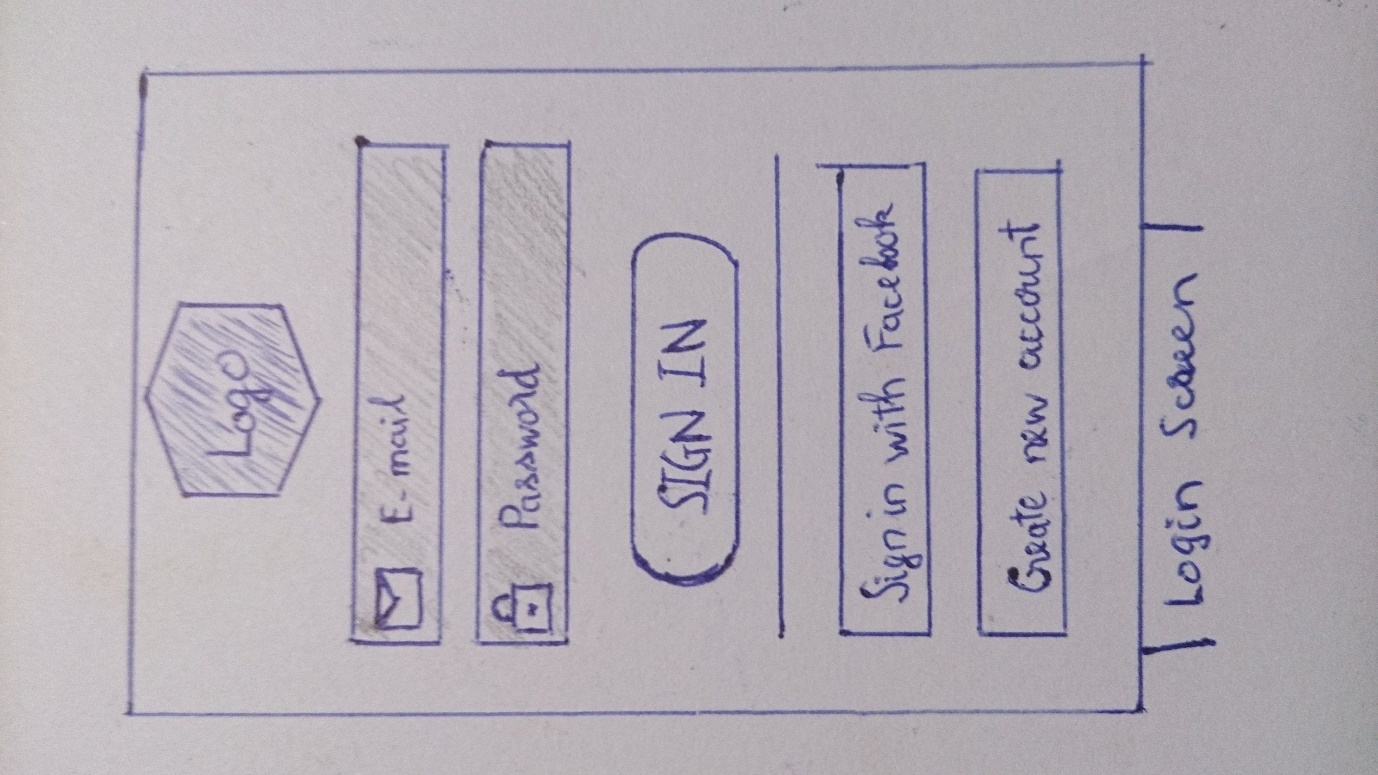 Logo
E-mail
Password
SIGN IN
Sign in with Facebook
Create new account
Login Screen